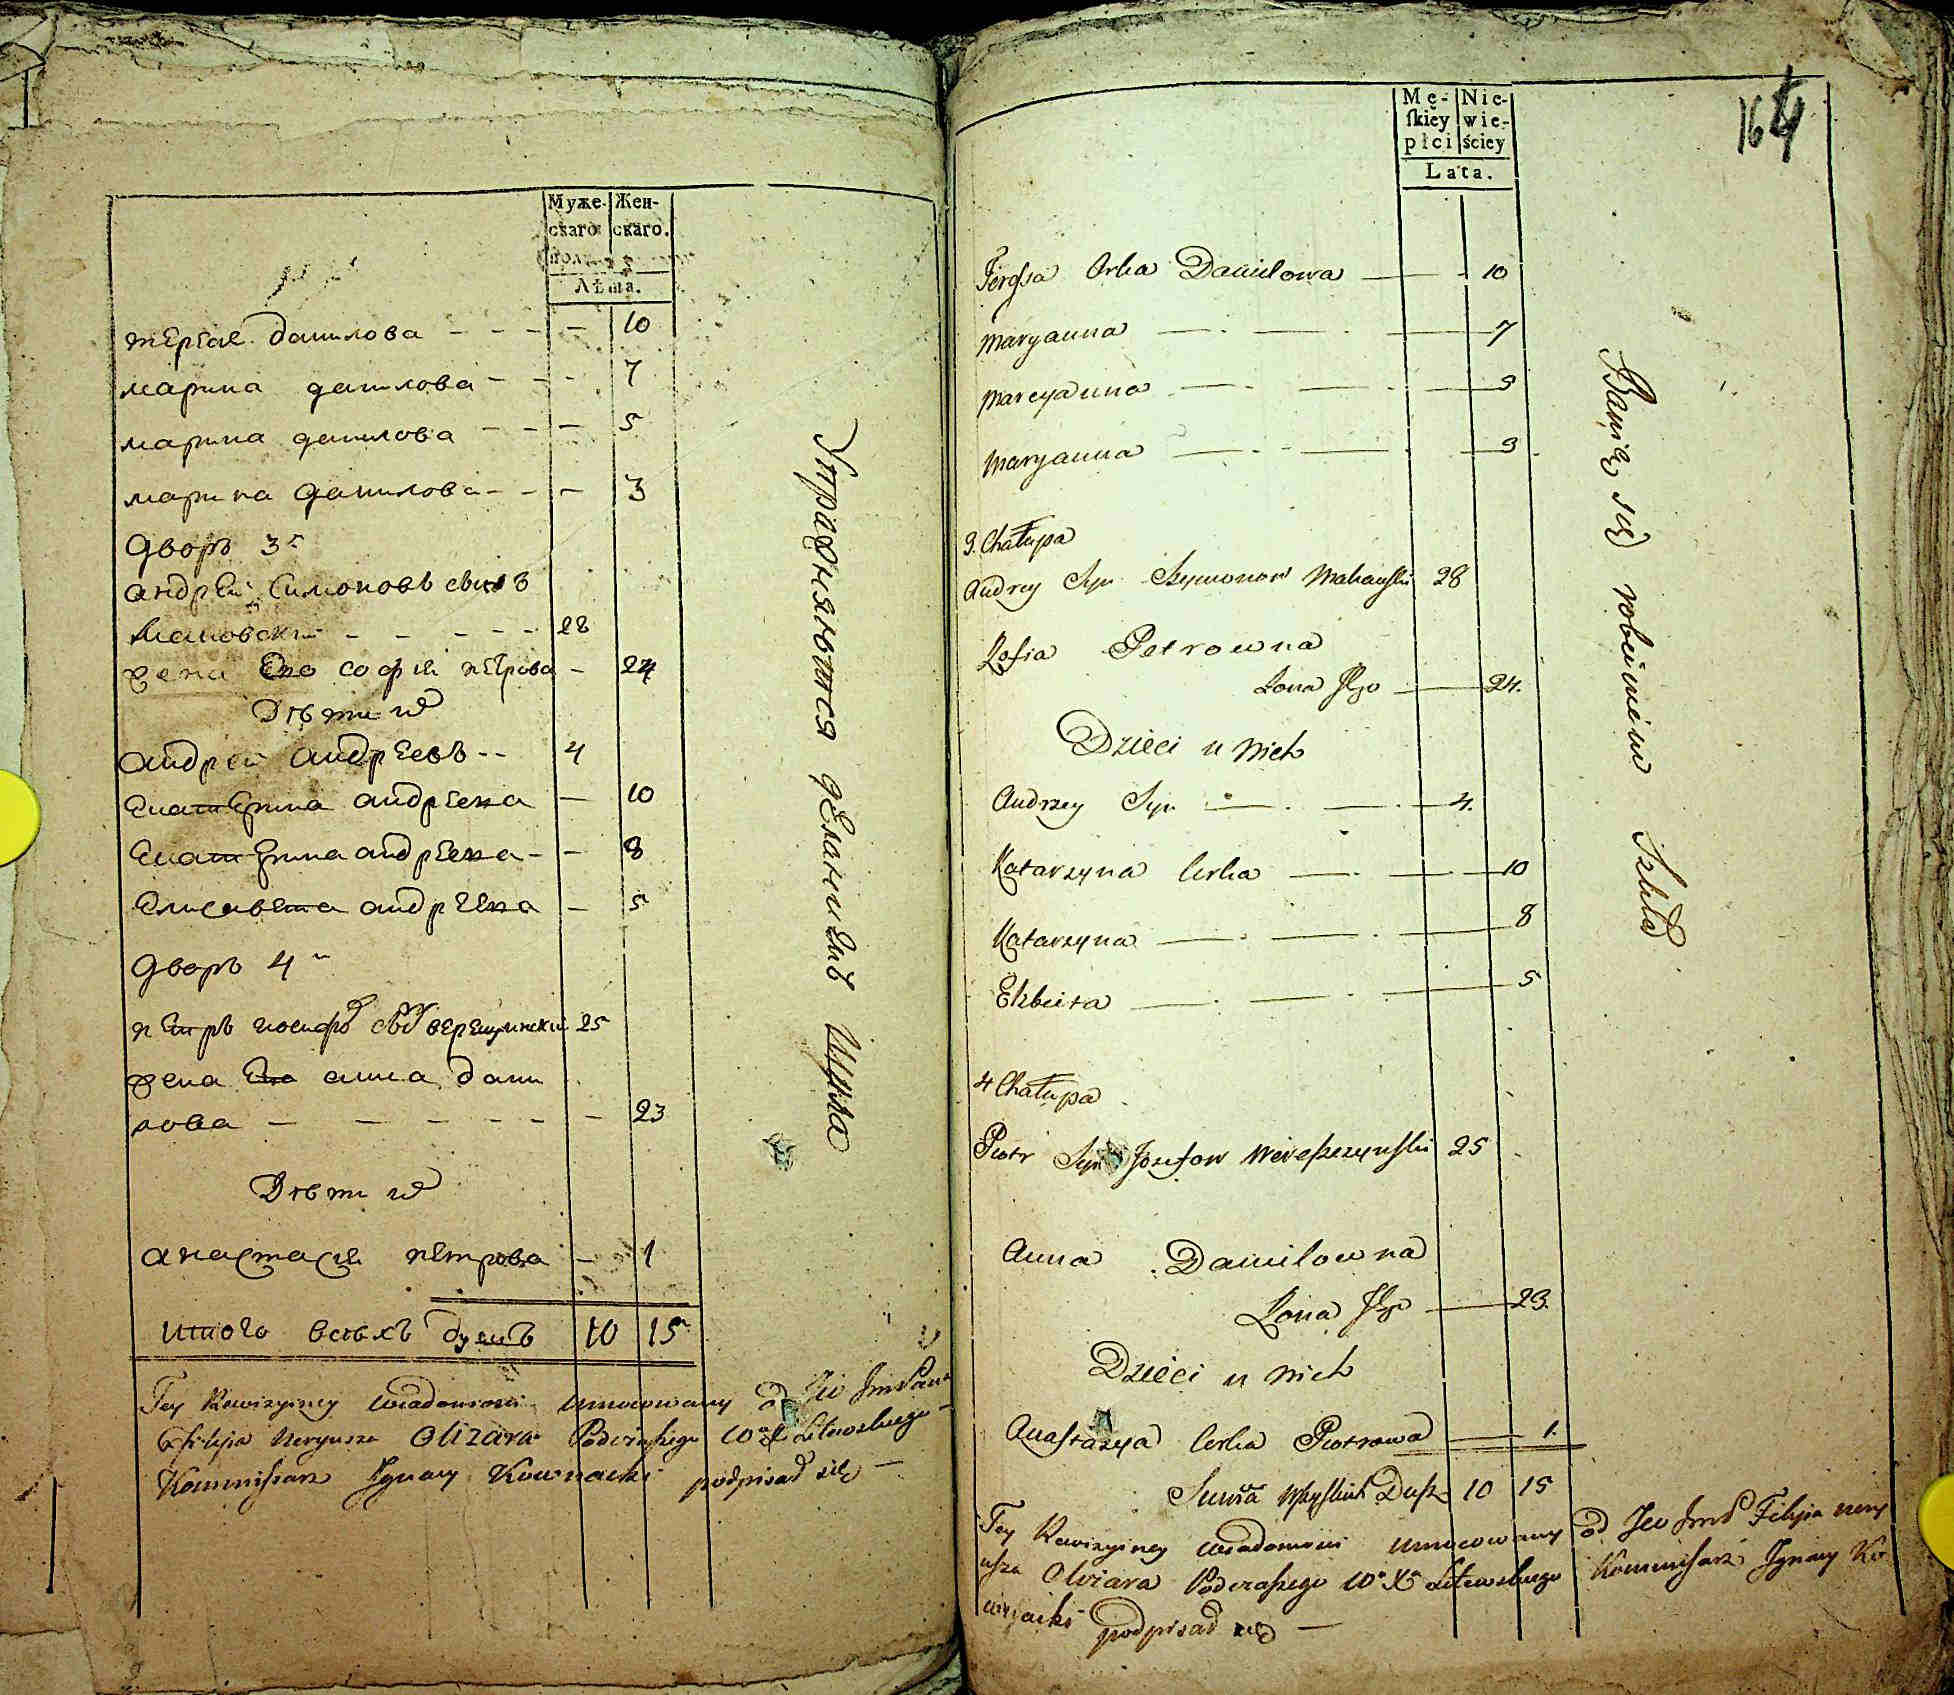 Муже-
скаго
пол
Жен-
скаго.
Лѣта.
терезе данилова - - - - 10
марина данилова - - - 7
марина данилова - - - 5
марина данилова - - - 3
дворъ 3й
андрей Симоновъ сынъ
Мановский - - - - - 28
жена Его софия петрова - 24
Дѣти их
андрей андреевъ -- 4
Екатерина андреева - 10
Екатерина андреева - - 8
Елисавета андреева - 5
дворъ 4й
петръ иосифов сын верещинский 25
жена Его анна дани
лова - - - - - - 23
Дѣти их
анастасия петрова - 1
итого всѣхъ душъ 10 15
Упражняются деланиемъ
Tey Rewizyiney wiadomosci umocowany od Jeo JmsPana
Filipa Neryusza Olizara Podczaszego WoXa Litewskiego
Kommissarz Ignacy Kownacki podpisał się —
164
Mę-
skiéy
płci
Nie-
wie-
ściey
Lata.
Teressa Crka Daniłowa — - 10
Maryanna — . — . — 7
Marcyanna — . — . — 5
Maryanna — . - — . — 3
3. Chałupa
Andrey Syn Szymonow 28
Zofia Petrowna
Zona Jego — 24.
Dzieci u Nich
Andrzey Syn — . — . — 4.
Katarzyna Crka — . — . — 10
Katarzyna — . — . — 8
Elzbieta — . — . — 5
4 Chałupa
Piotr Syn Jozefow Wereszczynski 25
Anna Daniłowna
Zona Jego — 23.
Dzieci u Nich
Anastazya Crka Piotrowa — 1.
Summa Wszystkich Dusz 10 15
Tey Rewizyiney wiadomosci umocowany od Jeo Jms Filipa Nery
usza Olizara Podczaszego WoXa Litewskiego Kommissarz Ignacy Ko
wnacki podpisał się —
Bawią się robieniem